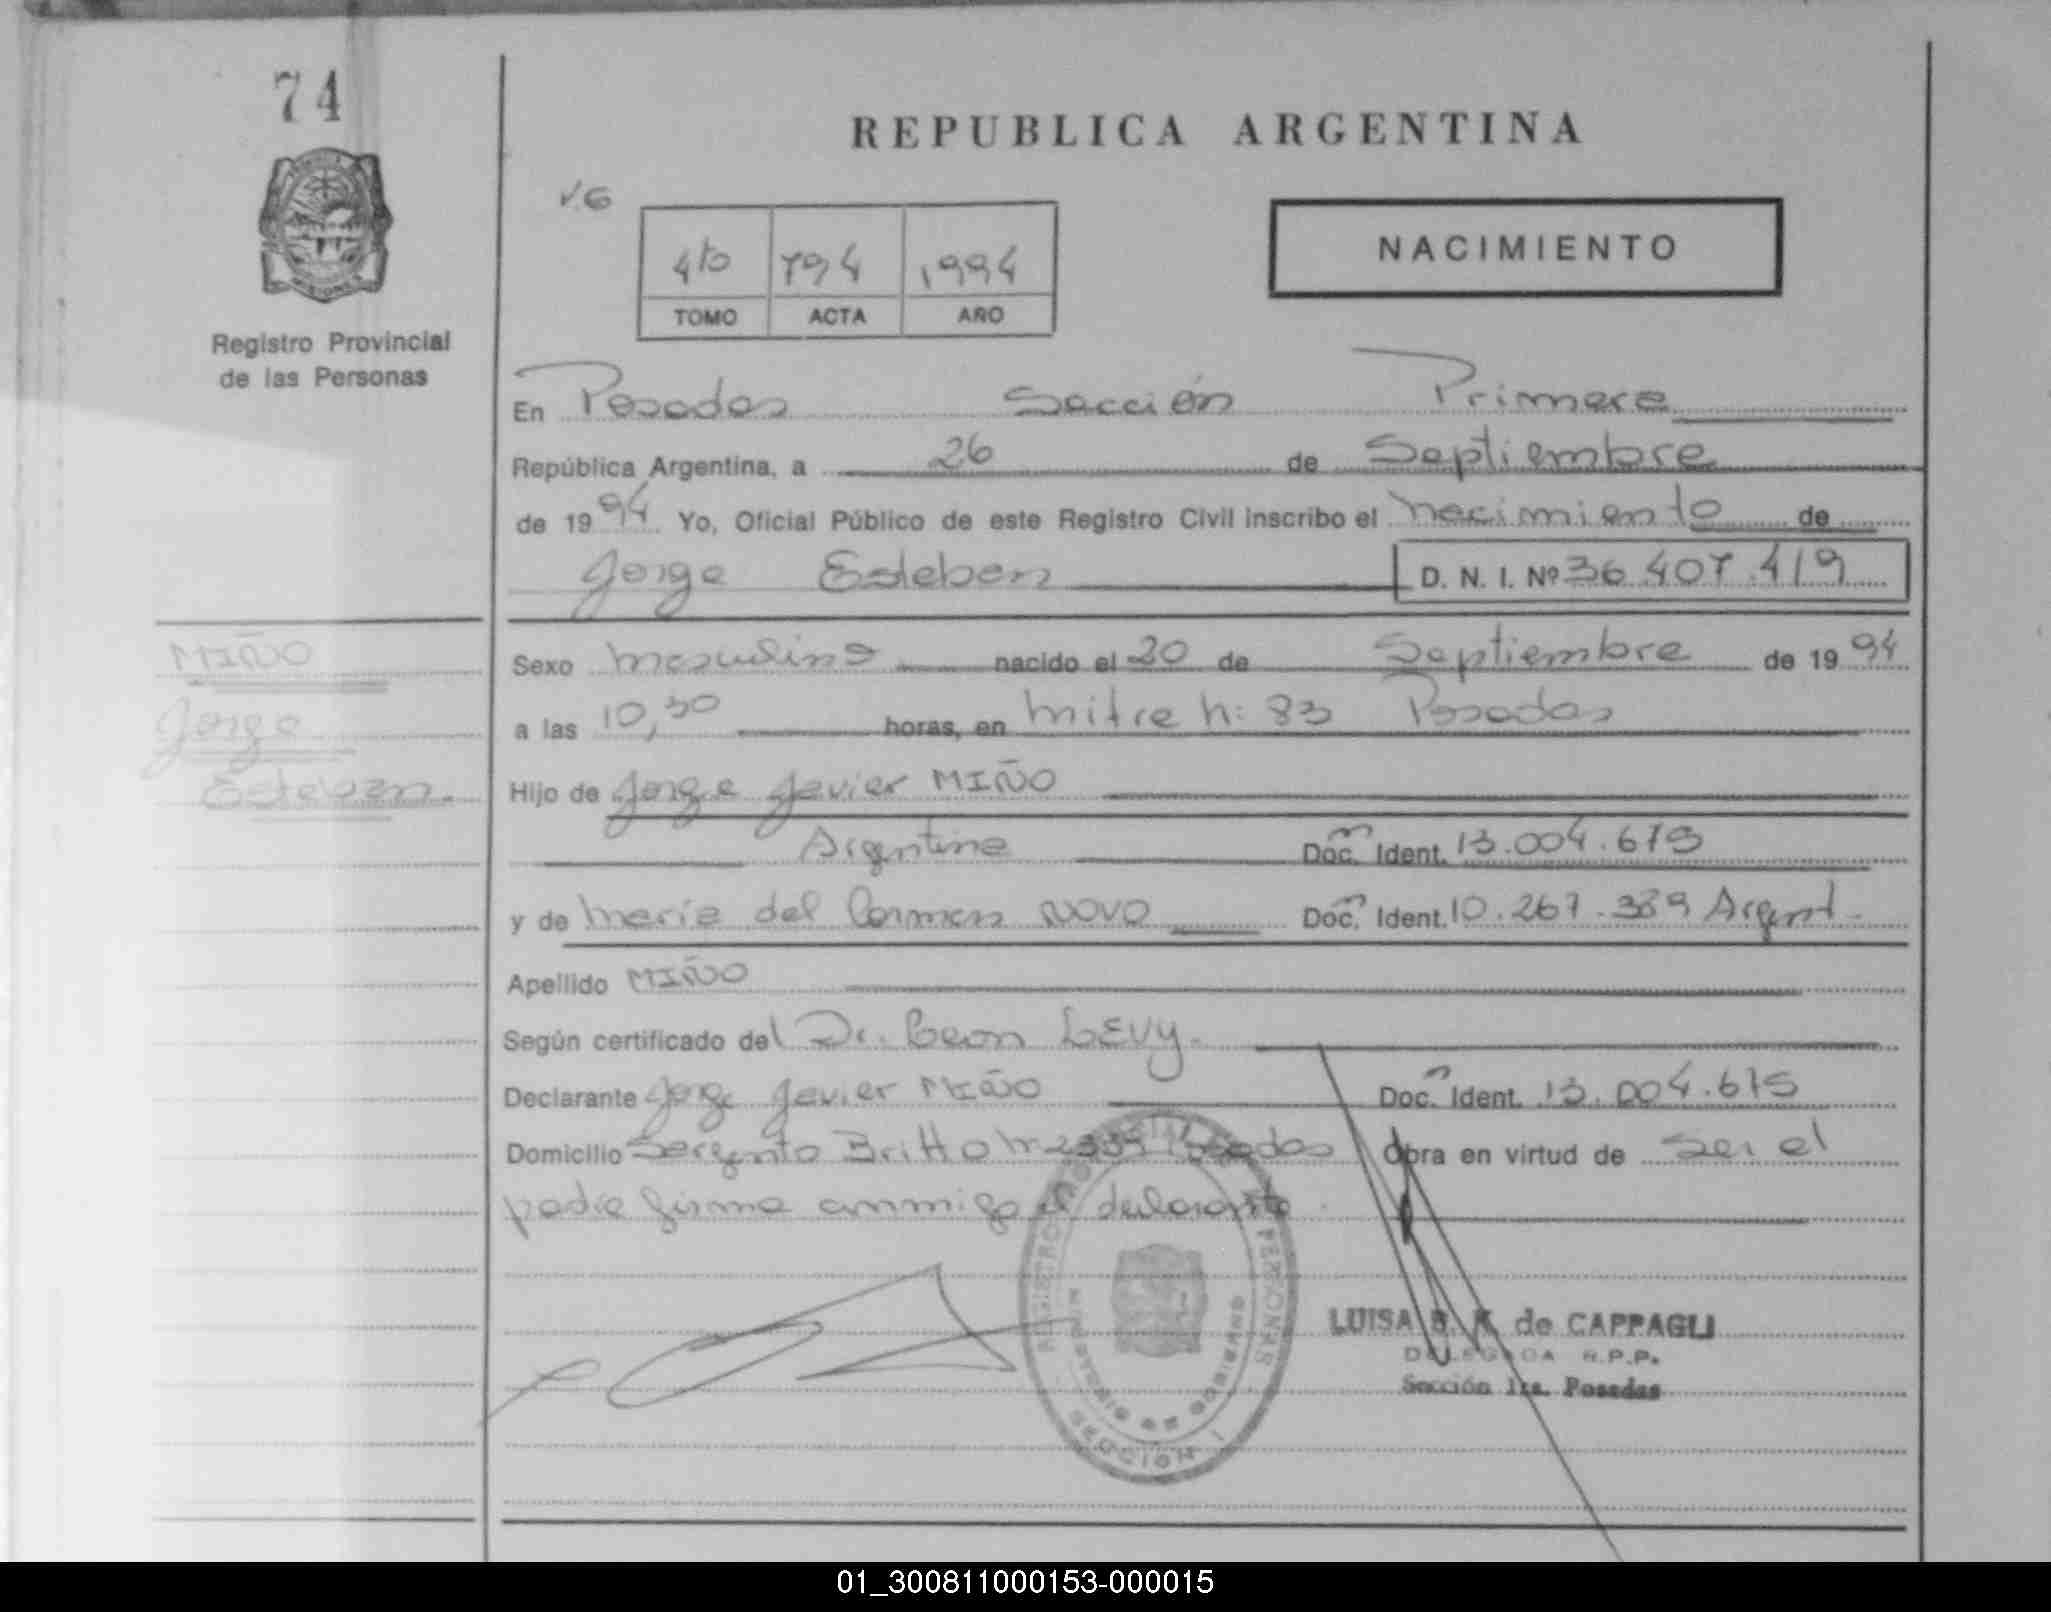 74
REPUBLICA ARGENTINA
V.G
4to 794 1994
TOMO ACTA AÑO
NACIMIENTO
Registro Provincial
de las Personas
En Posadas Sección Primera
República Argentina, a 26 de Septiembre
de 1994 Yo, Oficial Público de este Registro Civil inscribo el nacimiento de
Jorge Esteban D. N. I. Nº 36.407.419
MIÑO
Jorge
Esteban.
Sexo masculino nacido el 20 de Septiembre de 1994
a las 10,30 horas, en Mitre n: 83 Posadas
Hijo de Jorge Javier MIÑO
Argentina Doc. Ident. 13.004.675
y de María del Carmen NOVO Doc. Ident. 10.267.389 Argent.
Apellido MIÑO
Según certificado del Dr. Leon LEVY.
Declarante Jorge Javier MIÑO Doc. Ident. 13.004.675
Domicilio Sargento Britto Posadas Obra en virtud de ser el
padre firma conmigo el declarante.
REGISTRO PERSONAS
MINISTERIO DE GOBIERNO
SECCION I
LUISA B. K. de CAPPAGLI
DELEGADA R.P.P.
Sección 1ra. Posadas
01_300811000153-000015